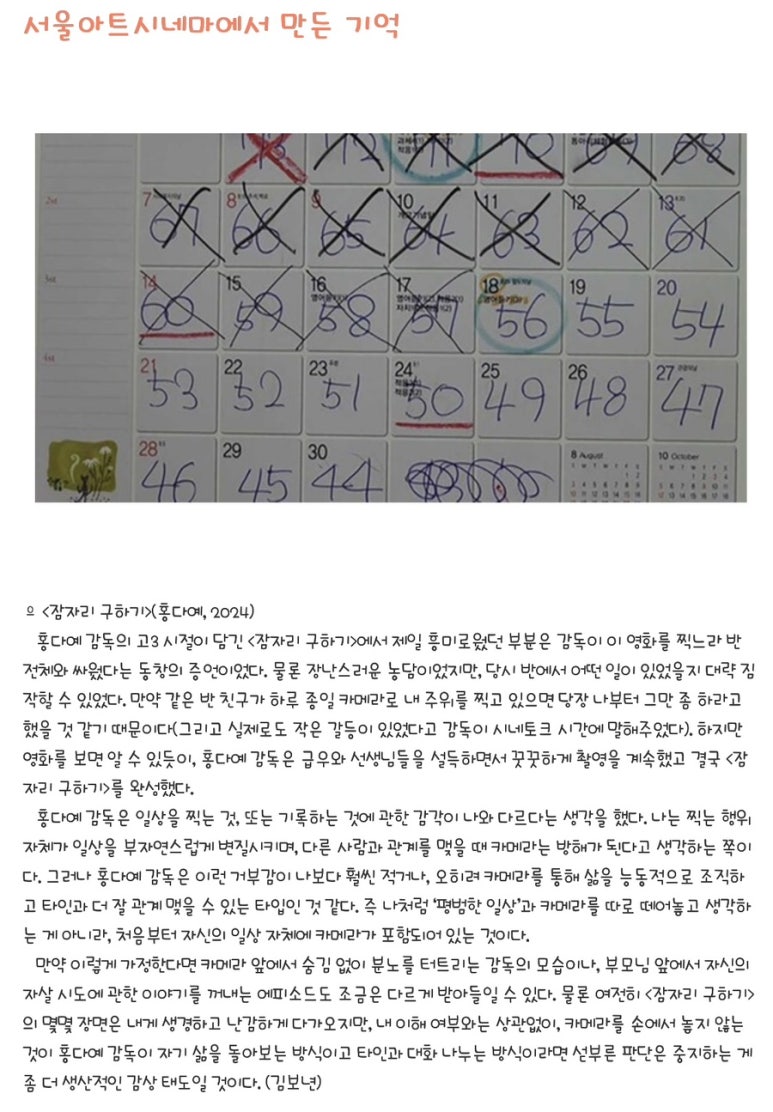 서울아트시네마에서 만든 기억
13 12 11 10 69 68
2nd 7 67 8 66 9 65 10 개교기념일 64 11 63 12 62 13 61
3rd 14 60 15 59 16 58 17 57 18 56 19 55 20 54
4th 21 53 22 52 23 51 24 50 25 49 26 48 27 47
28 46 29 45 30 44 8 August 10 October
으 <잠자리 구하기>(홍다예, 2024)
홍다예 감독의 고3 시절이 담긴 <잠자리 구하기>에서 제일 흥미로웠던 부분은 감독이 이 영화를 찍느라 반
전체와 싸웠다는 동창의 증언이었다. 물론 장난스러운 농담이었지만, 당시 반에서 어떤 일이 있었을지 대략 짐
작할 수 있었다. 만약 같은 반 친구가 하루 종일 카메라로 내 주위를 찍고 있으면 당장 나부터 그만 좀 하라고
했을 것 같기 때문이다(그리고 실제로도 작은 갈등이 있었다고 감독이 시네토크 시간에 말해주었다). 하지만
영화를 보면 알 수 있듯이, 홍다예 감독은 급우와 선생님들을 설득하면서 꿋꿋하게 촬영을 계속했고 결국 <잠
자리 구하기>를 완성했다.
홍다예 감독은 일상을 찍는 것, 또는 기록하는 것에 관한 감각이 나와 다르다는 생각을 했다. 나는 찍는 행위
자체가 일상을 부자연스럽게 변질시키며, 다른 사람과 관계를 맺을 때 카메라는 방해가 된다고 생각하는 쪽이
다. 그러나 홍다예 감독은 이런 거부감이 나보다 훨씬 적거나, 오히려 카메라를 통해 삶을 능동적으로 조직하
고 타인과 더 잘 관계 맺을 수 있는 타입인 것 같다. 즉 나처럼 ‘평범한 일상’과 카메라를 따로 떼어놓고 생각하
는 게 아니라, 처음부터 자신의 일상 자체에 카메라가 포함되어 있는 것이다.
만약 이렇게 가정한다면 카메라 앞에서 숨김 없이 분노를 터트리는 감독의 모습이나, 부모님 앞에서 자신의
자살 시도에 관한 이야기를 꺼내는 에피소드도 조금은 다르게 받아들일 수 있다. 물론 여전히 <잠자리 구하기>
의 몇몇 장면은 내게 생경하고 난감하게 다가오지만, 내 이해 여부와는 상관없이, 카메라를 손에서 놓지 않는
것이 홍다예 감독이 자기 삶을 돌아보는 방식이고 타인과 대화 나누는 방식이라면 섣부른 판단은 중지하는 게
좀 더 생산적인 감상 태도일 것이다. (김보년)